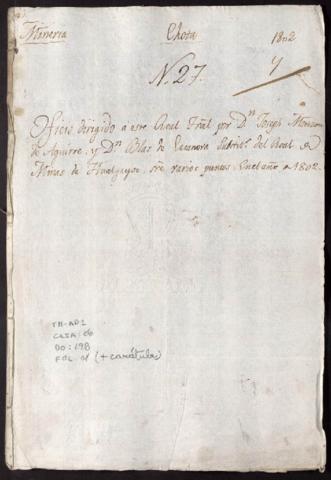 Mineria Chota 1802
Y
N. 27.
Oficio dirigido á este Real Trãl por Dn. Joseph
de Aguirre, y Dn. Blas de Subtitˢ. del Real de
Minas de Hualgayoc, sre varios puntos, en el año de 1802.
TM-AD1
CAJA: 06
DO: 198
FOL. 01 (+ carátula)